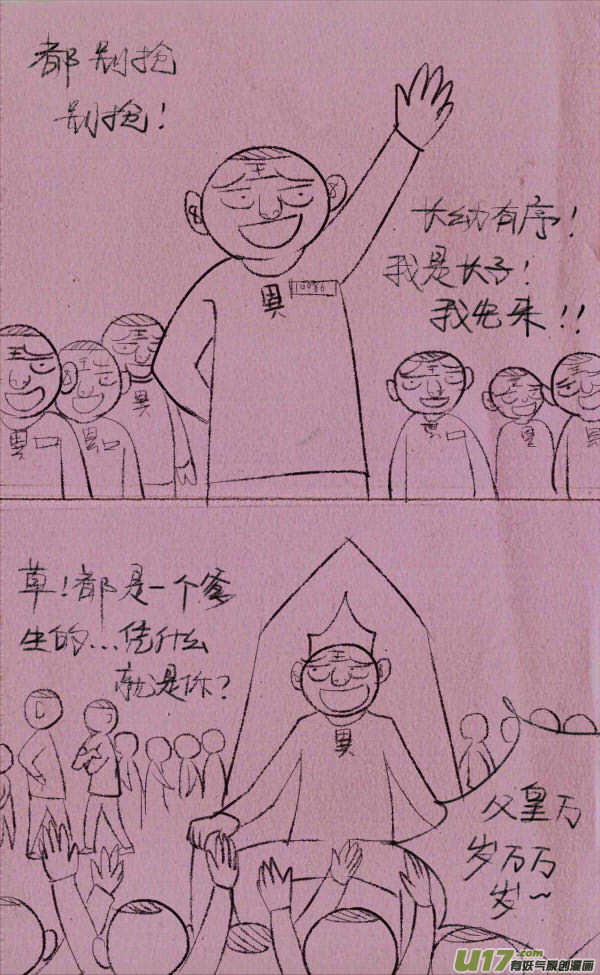 都别抢
别抢！
长幼有序！
我是长子！
我先来！！
王
10086
異
王
異
王
異
王
異
王
異
王
異
王
異
草！都是一个爹
生的...凭什么
就是你？
王
異
父皇万
岁万万
岁～
U17.com
有妖气原创漫画